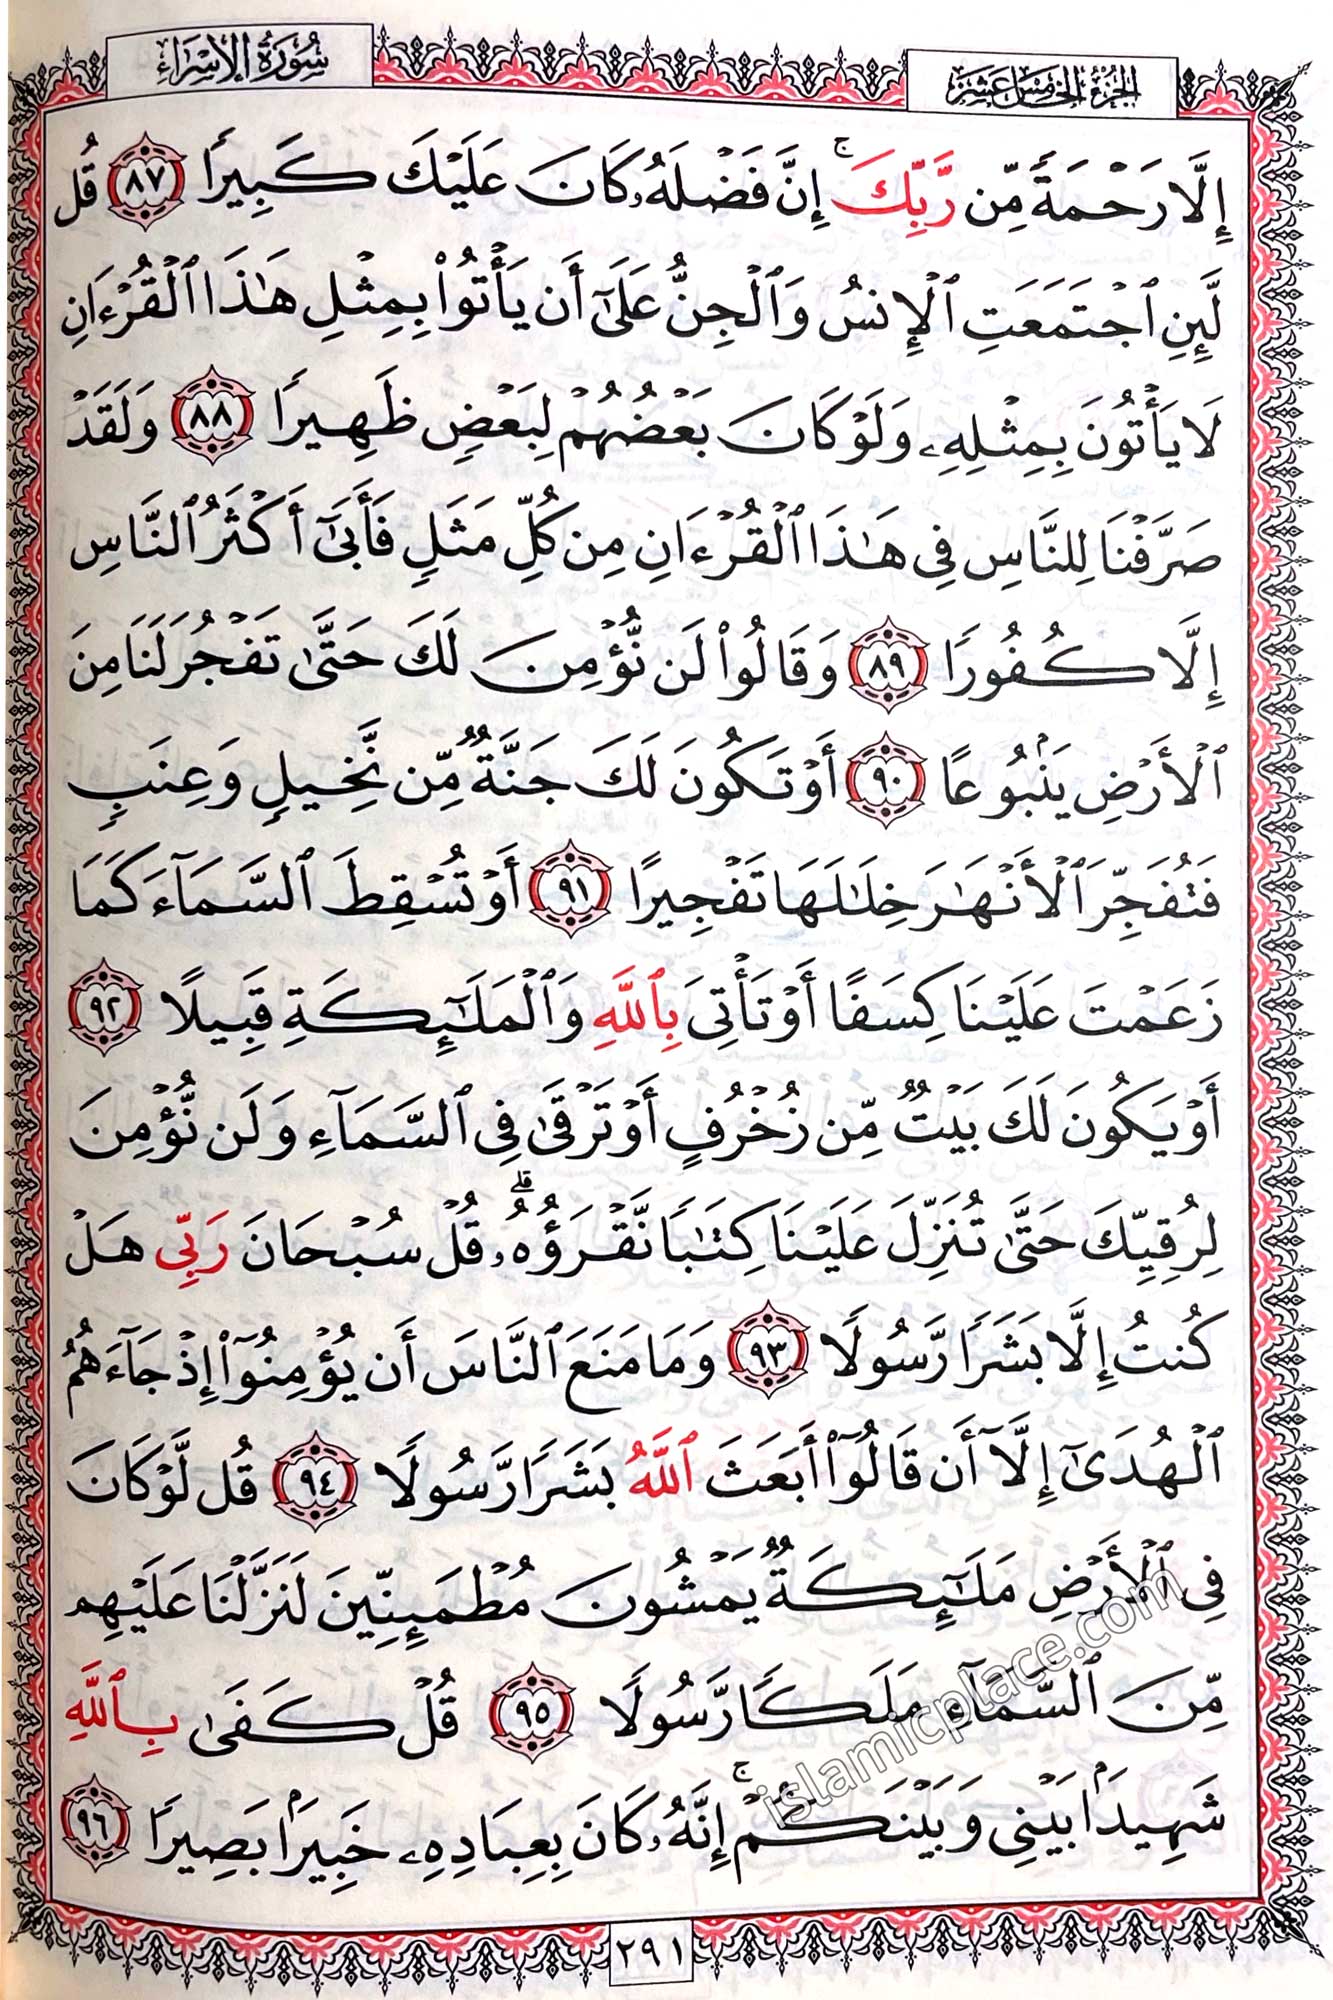 الجزء الخامس عشر
سورة الإسراء
إِلَّا رَحْمَةً مِّن رَّبِّكَ ۚ إِنَّ فَضْلَهُۥ كَانَ عَلَيْكَ كَبِيرًا ٨٧ قُل
لَّئِنِ ٱجْتَمَعَتِ ٱلْإِنسُ وَٱلْجِنُّ عَلَىٰٓ أَن يَأْتُوا۟ بِمِثْلِ هَـٰذَا ٱلْقُرْءَانِ
لَا يَأْتُونَ بِمِثْلِهِۦ وَلَوْ كَانَ بَعْضُهُمْ لِبَعْضٍ ظَهِيرًا ٨٨ وَلَقَدْ
صَرَّفْنَا لِلنَّاسِ فِى هَـٰذَا ٱلْقُرْءَانِ مِن كُلِّ مَثَلٍ فَأَبَىٰٓ أَكْثَرُ ٱلنَّاسِ
إِلَّا كُفُورًا ٨٩ وَقَالُوا۟ لَن نُّؤْمِنَ لَكَ حَتَّىٰ تَفْجُرَ لَنَا مِنَ
ٱلْأَرْضِ يَنۢبُوعًا ٩٠ أَوْ تَكُونَ لَكَ جَنَّةٌ مِّن نَّخِيلٍ وَعِنَبٍ
فَتُفَجِّرَ ٱلْأَنْهَـٰرَ خِلَـٰلَهَا تَفْجِيرًا ٩١ أَوْ تُسْقِطَ ٱلسَّمَآءَ كَمَا
زَعَمْتَ عَلَيْنَا كِسَفًا أَوْ تَأْتِىَ بِٱللَّهِ وَٱلْمَلَـٰٓئِكَةِ قَبِيلًا ٩٢
أَوْ يَكُونَ لَكَ بَيْتٌ مِّن زُخْرُفٍ أَوْ تَرْقَىٰ فِى ٱلسَّمَآءِ وَلَن نُّؤْمِنَ
لِرُقِيِّكَ حَتَّىٰ تُنَزِّلَ عَلَيْنَا كِتَـٰبًا نَّقْرَؤُهُۥ ۗ قُلْ سُبْحَانَ رَبِّى هَلْ
كُنتُ إِلَّا بَشَرًا رَّسُولًا ٩٣ وَمَا مَنَعَ ٱلنَّاسَ أَن يُؤْمِنُوٓا۟ إِذْ جَآءَهُمُ
ٱلْهُدَىٰٓ إِلَّآ أَن قَالُوٓا۟ أَبَعَثَ ٱللَّهُ بَشَرًا رَّسُولًا ٩٤ قُل لَّوْ كَانَ
فِى ٱلْأَرْضِ مَلَـٰٓئِكَةٌ يَمْشُونَ مُطْمَئِنِّينَ لَنَزَّلْنَا عَلَيْهِم
مِّنَ ٱلسَّمَآءِ مَلَكًا رَّسُولًا ٩٥ قُلْ كَفَىٰ بِٱللَّهِ
شَهِيدًۢا بَيْنِى وَبَيْنَكُمْ ۚ إِنَّهُۥ كَانَ بِعِبَادِهِۦ خَبِيرًۢا بَصِيرًا ٩٦
٢٩١
islamicplace.com